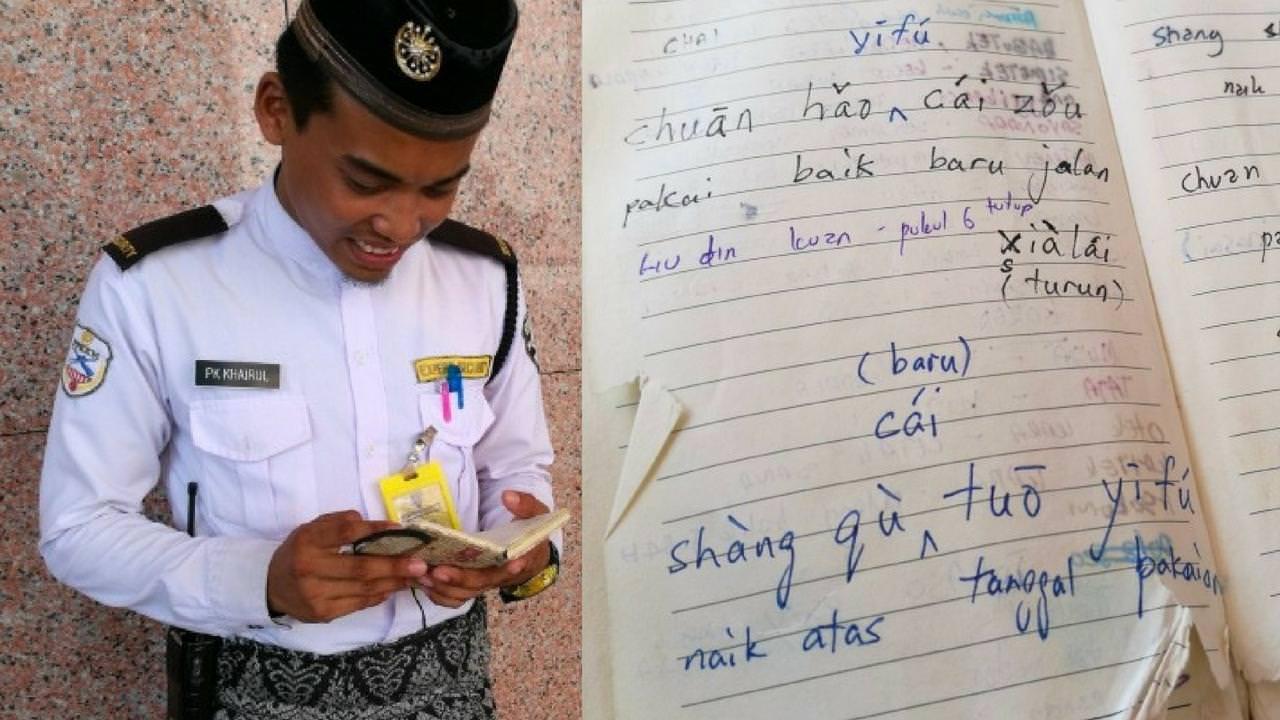 PK KHAIRUL
yīfú
chuān hǎo ^ cái zǒu
pakai baik baru jalan
Liu din kuzn - pukul 6 tutup
xià lái
(turun)
(baru)
cái
shàng qù ^ tuō yīfú
naik atas tanggal pakaian
shang
naik
chuzn